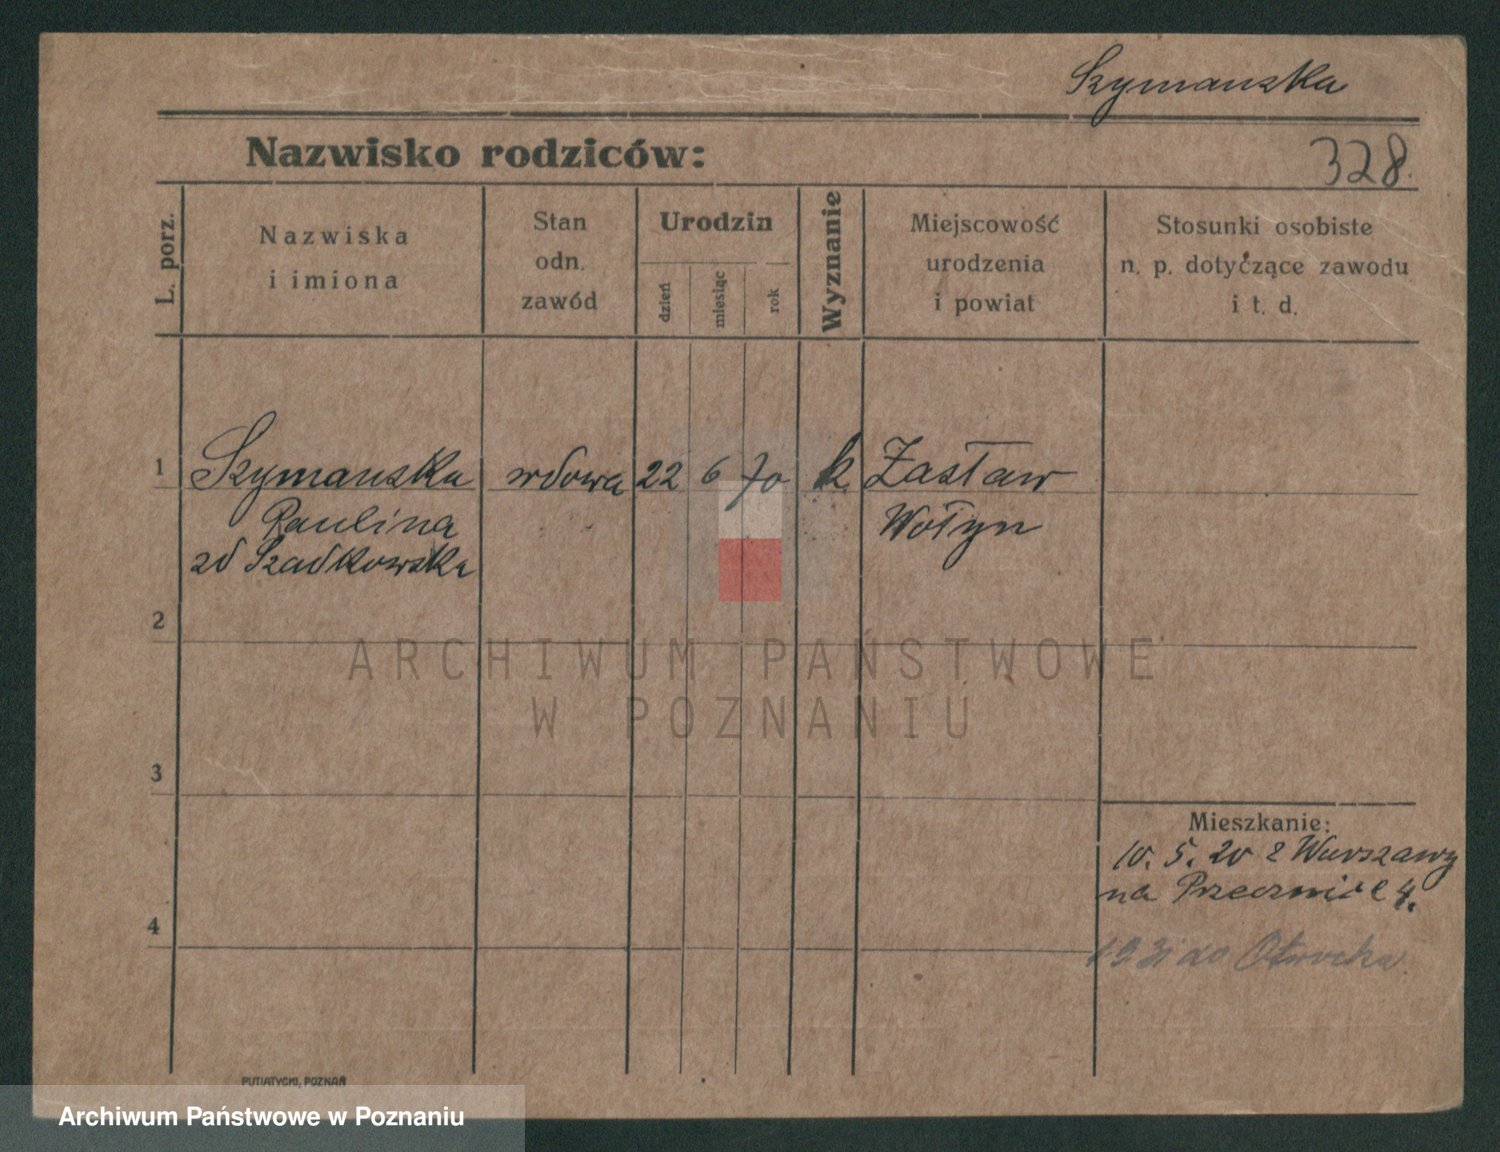 Szymanska
Nazwisko rodziców:
328.
L. porz.
Nazwiska
i imiona
Stan
odn.
zawód
Urodzin
dzień
miesiąc
rok
Wyznanie
Miejscowość
urodzenia
i powiat
Stosunki osobiste
n. p. dotyczące zawodu
i t. d.
1
Szymanska
wdowa
22
6
70
k
Zasław
Paulina
Wołyn
zd Szadkowska
2
ARCHIWUM PAŃSTWOWE
W POZNANIU
3
Mieszkanie:
10. 5. 20 z Warszawy
na Przecznicę 4.
4
do Otwocka
PUTIATYCKI, POZNAŃ
Archiwum Państwowe w Poznaniu